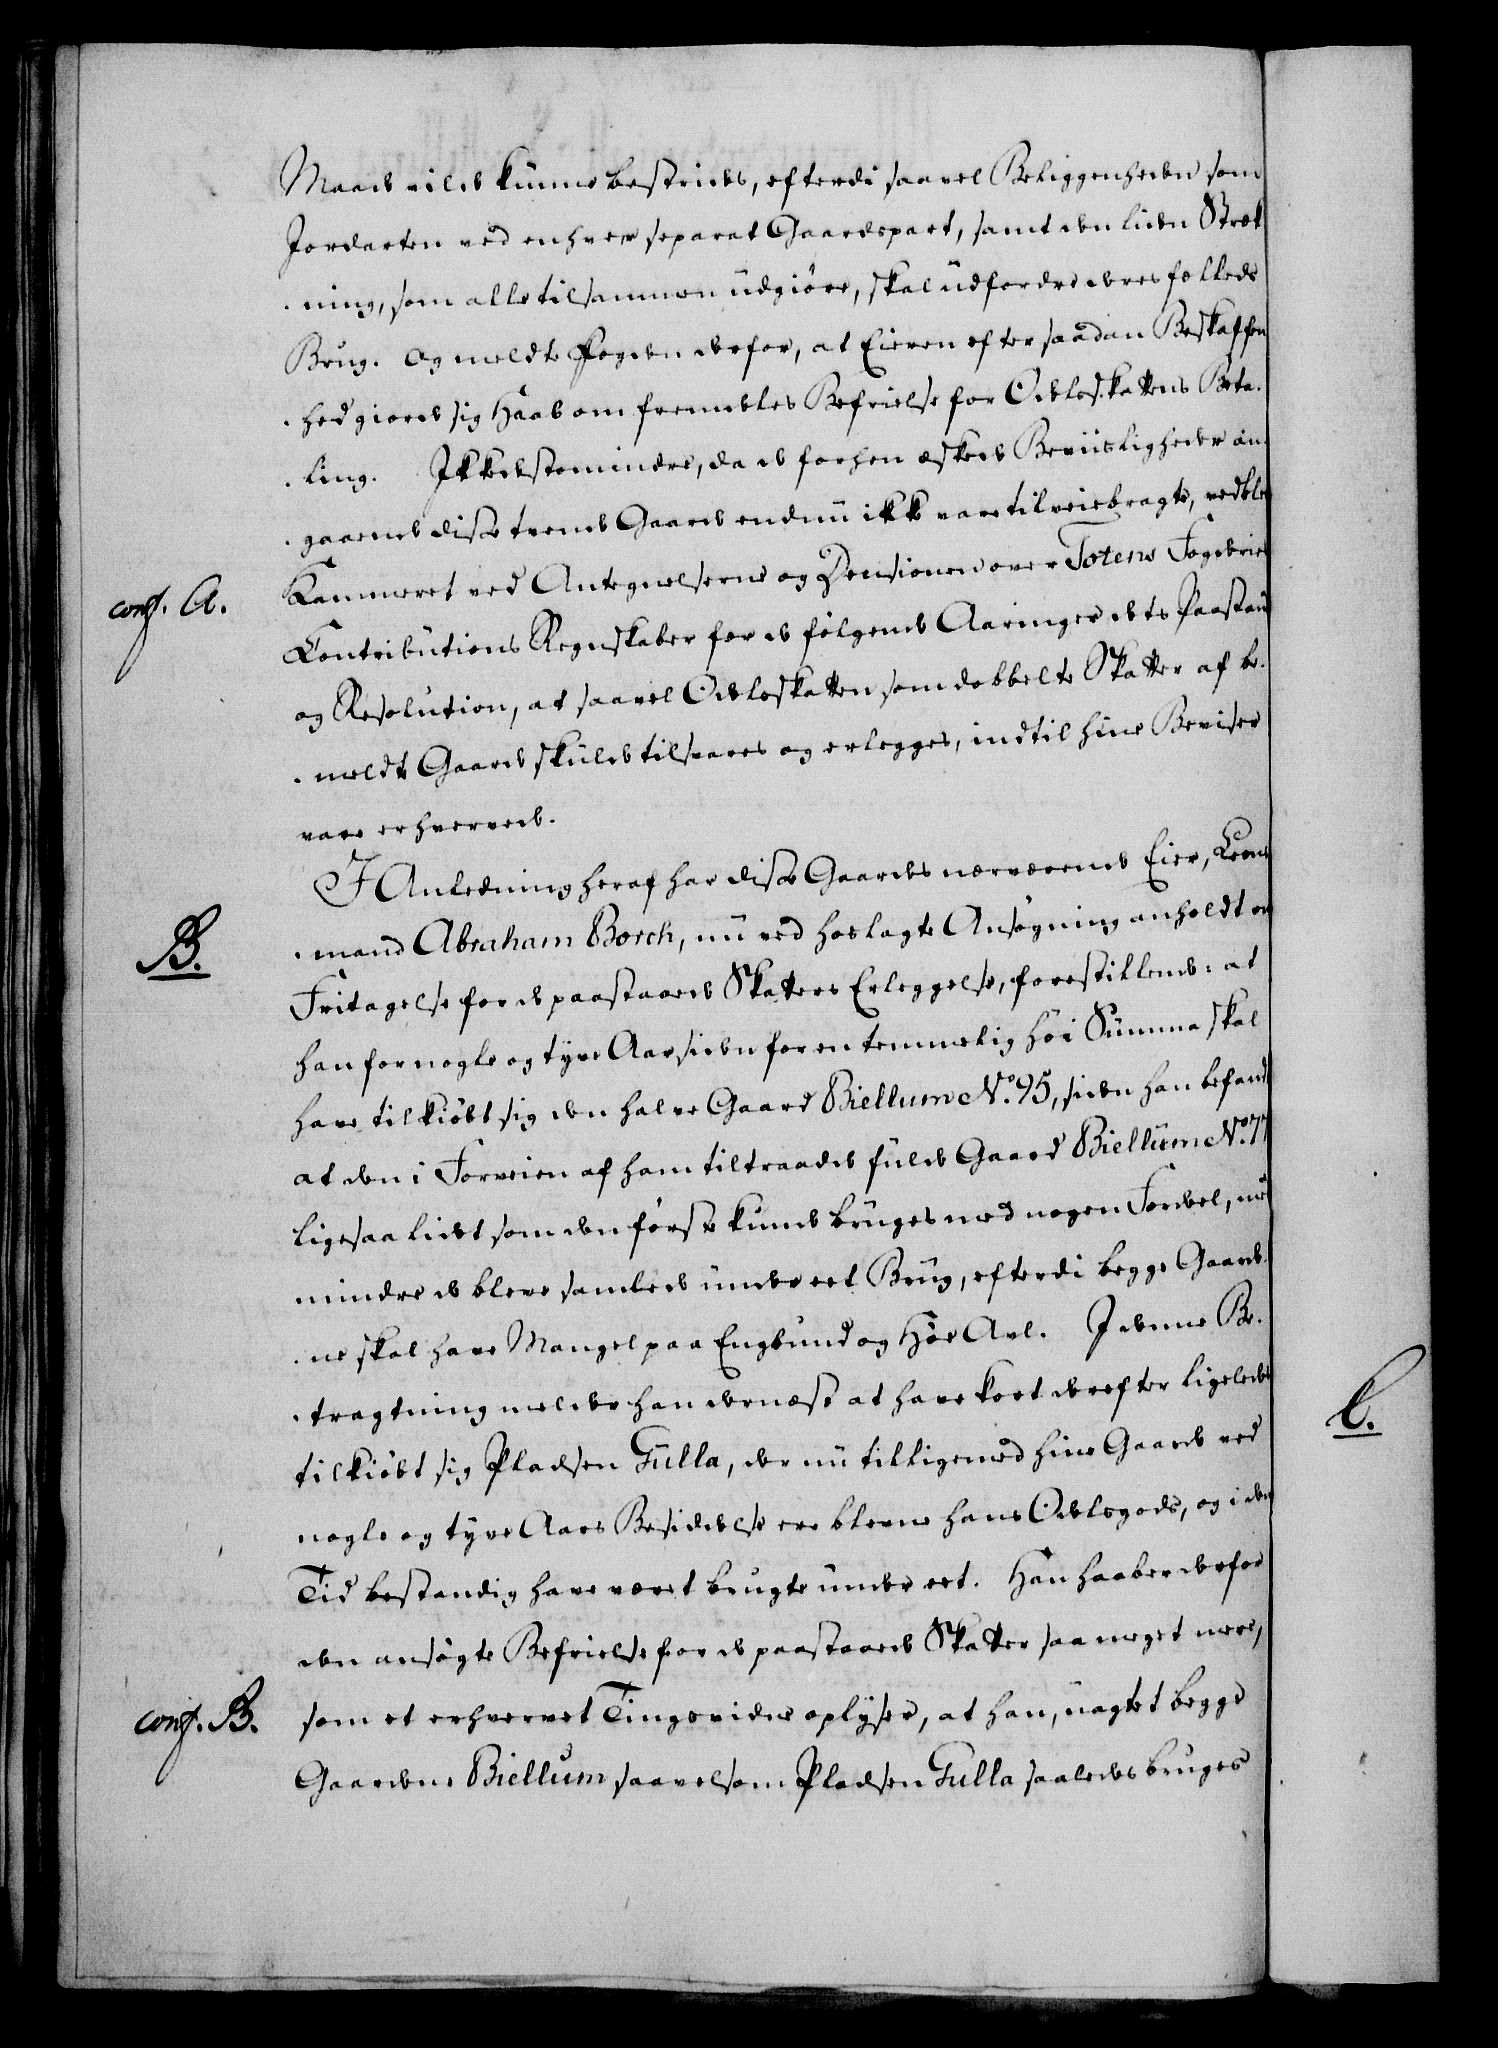 Maade vilde kunne bestrides, efterdi saavel Beliggenheden som
Jordarten ved enhver separat Gaardspart, samt den liden Stræk
. ning, som alle tilsammen udgiöre, skal udfordre deres fælleds
Brug. Og meldte Fogden derfor, at Eieren efter saadan Beskaffen
. hed giorde sig Haab om fremdeles Befrielse for Odelsskattens Beta.
. ling. Ikkedestomindre, da de forhen æskede Beviisligheder an-
. gaaende disse tvende Gaarde endnu ikke vare tilveiebragte, vedblev
conf. A. Kammeret ved Antegnelserne og Decisionen over Totens Fogderies
Contributions Regnskaber for de fölgende Aaringer dets Paastand
og Resolution, at saavel Odelsskatten som dobbelte Skatter af be.
. meldte Gaarde skulde tilsvares og erlegges, indtil hine Beviser
vare erhvervede.
I Anledning heraf har disse Gaardes nærværende Eier, Leens
B. . mand Abraham Borch, nu ved hoslagte Ansögning anholdt om
Fritagelse for de paastaaede Skatters Erleggelse, forestillende: at
han for nogle og tyve Aar siden for en temmelig höi Summa skal
have tilkiöbt sig den halve Gaard Biellum No. 95, siden han befandt
at den i Forveien af ham tiltraadde fulde Gaard Biellum No. 77
ligesaa lidet som den förste kunde bruges med nogen Fordeel, med
mindre de bleve samlede under eet Brug, efterdi begge Gaarde.
. ne skal have Mangel paa Engbund og Höe Avl. I denne Be.
. tragtning melder han dernæst at have kort derefter ligeledes
C.
tilkiöbt sig Pladsen Fulla, der nu tilligemed hine Gaarde ved
nogle og tyve Aars Besiddelse ere blevne hans Odelsgods, og i den
Tid bestandig have været brugte under eet. Han haaber derfor
den ansögte Befrielse for de paastaaede Skatter saa meget mere,
conf. B. som et erhvervet Tingsvidne oplyser, at han, uagtet begge
Gaardene Biellum saavelsom Pladsen Fulla saaledes bruges